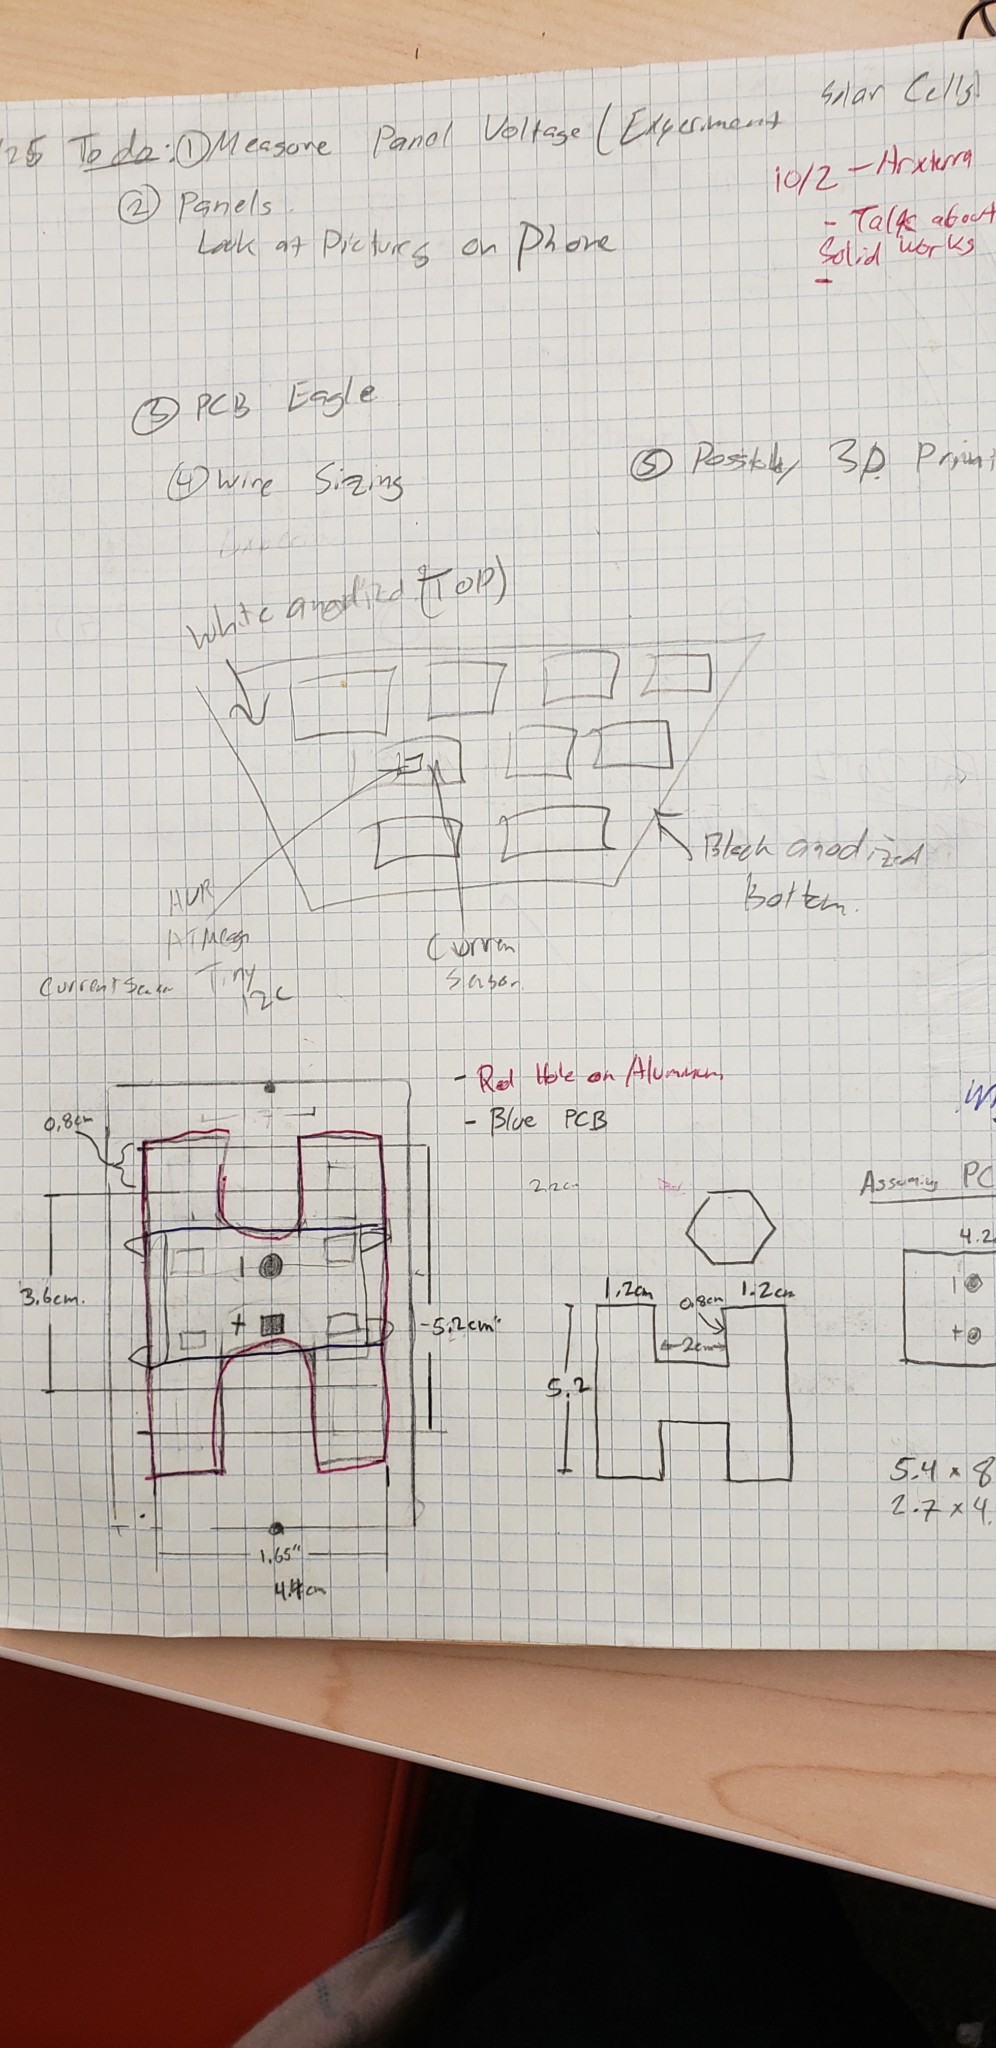 Solar Cells
/25 To do: ① Measure Panel Voltage (Experiment
10/2 - Arxterra
② Panels.
- Talk about
Look at Pictures on Phone
Solid works
-
③ PCB Eagle
④ Wire Sizing
⑤ Possibly 3D Print
White anodized (TOP)
Black anodized
Bottom.
ATMega
Curren
Sensor
Tiny
I2C
- Red Hole on Aluminum
- Blue PCB
0.8cm
2.2cm
Assuming PC
4.2
1.2cm
0.8cm
1.2cm
3.6cm.
-
+
5.2cm
2cm
5.2
-
+
5.4 x 8
2.7 x 4.
1.65"
4.4cm